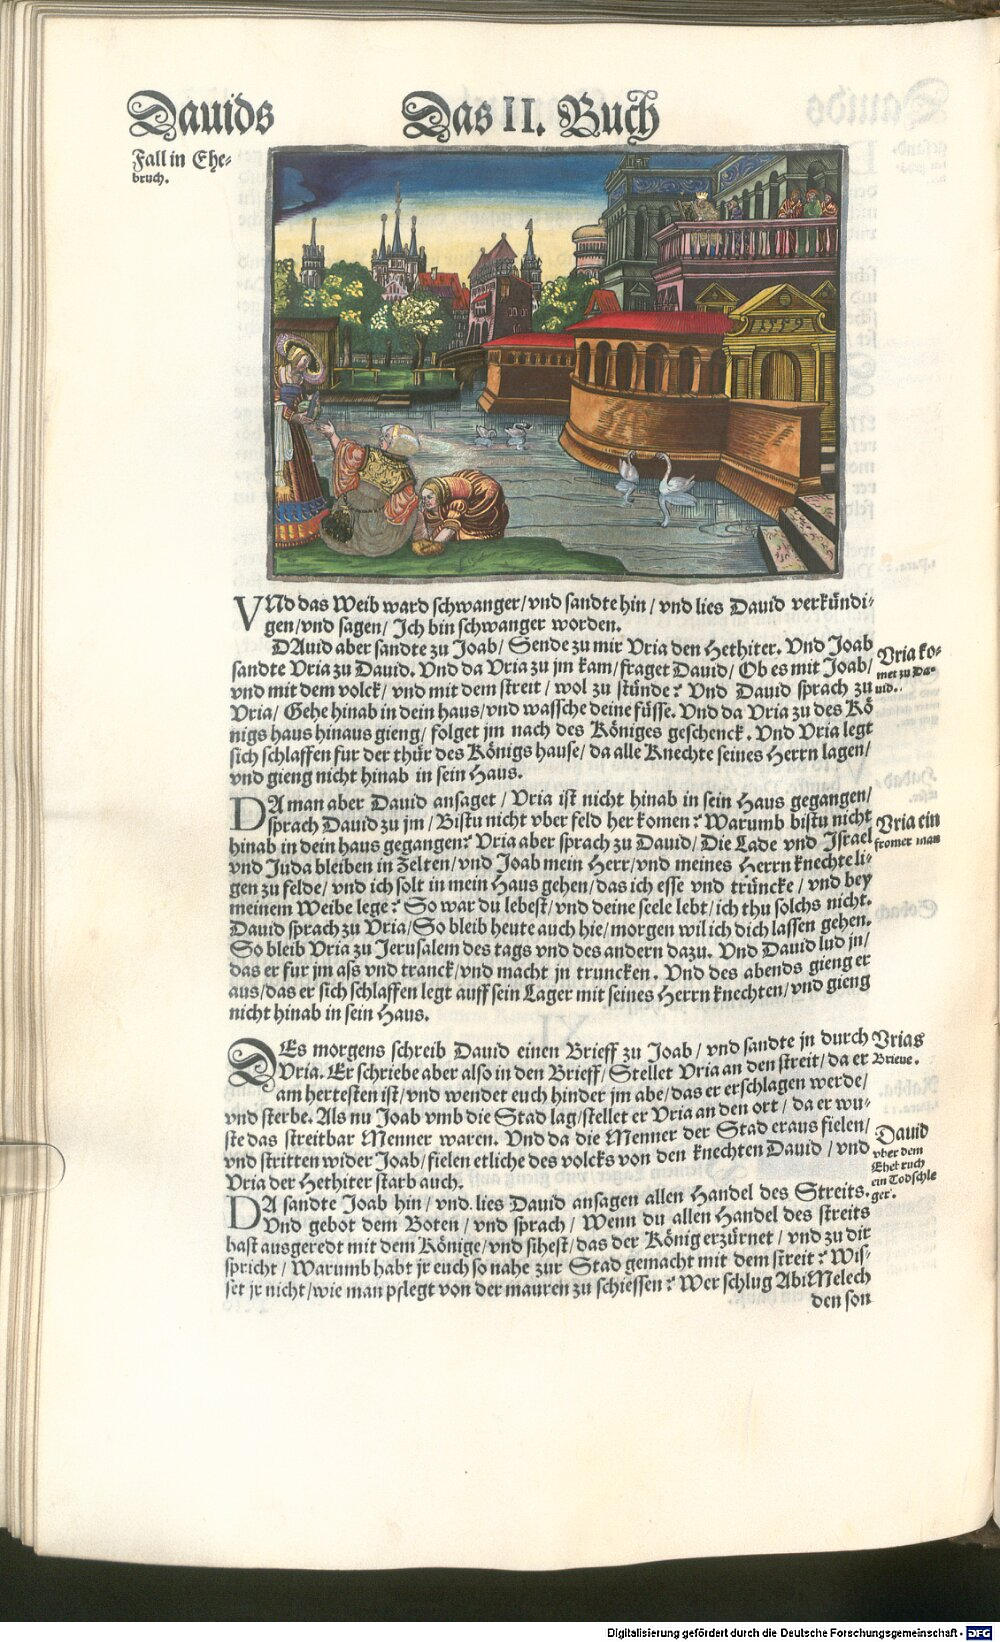 Dauids
Das II. Buch
Fall in Ehe-
bruch.
1559
VNd das Weib ward schwanger/vnd sandte hin/vnd lies Dauid verkündi-
gen/vnd sagen/Ich bin schwanger worden.
DAuid aber sandte zu Joab/Sende zu mir Vria den Hethiter. Vnd Joab
sandte Vria zu Dauid. Vnd da Vria zu jm kam/fraget Dauid/Ob es mit Joab/
vnd mit dem volck/vnd mit dem streit/wol zu stünde? Vnd Dauid sprach zu
Vria/Gehe hinab in dein haus/vnd wassche deine füsse. Vnd da Vria zu des Kö
nigs haus hinaus gieng/folget jm nach des Königes geschenck. Vnd Vria legt
sich schlaffen fur der thür des Königs hause/da alle Knechte seines Herrn lagen/
vnd gieng nicht hinab in sein Haus.
Vria ko-
met zu Da-
uid.
DA man aber Dauid ansaget/Vria ist nicht hinab in sein Haus gegangen/
sprach Dauid zu jm/Bistu nicht vber feld her komen? Warumb bistu nicht
hinab in dein haus gegangen? Vria aber sprach zu Dauid/Die Lade vnd Israel
vnd Juda bleiben in Zelten/vnd Joab mein Herr/vnd meines Herrn knechte li-
gen zu felde/vnd ich solt in mein Haus gehen/das ich esse vnd trüncke/vnd bey
meinem Weibe lege? So war du lebest/vnd deine seele lebt/ich thu solchs nicht.
Dauid sprach zu Vria/So bleib heute auch hie/morgen wil ich dich lassen gehen.
So bleib Vria zu Jerusalem des tags vnd des andern dazu. Vnd Dauid lud jn/
das er fur jm ass vnd tranck/vnd macht jn truncken. Vnd des abends gieng er
aus/das er sich schlaffen legt auff sein Lager mit seines Herrn knechten/vnd gieng
nicht hinab in sein Haus.
Vria ein
fromer man
DEs morgens schreib Dauid einen Brieff zu Joab/vnd sandte jn durch
Vria. Er schriebe aber also in den Brieff/Stellet Vria an den streit/da er
am hertesten ist/vnd wendet euch hinder jm abe/das er erschlagen werde/
vnd sterbe. Als nu Joab vmb die Stad lag/stellet er Vria an den ort/da er wu-
ste das streitbar Menner waren. Vnd da die Menner der Stad eraus fielen/
vnd stritten wider Joab/fielen etliche des volcks von den knechten Dauid/vnd
Vria der Hethiter starb auch.
Vrias
Brieue.
Dauid
vber dem
Ehebruch
ein Todschle
ger.
DA sandte Joab hin/vnd lies Dauid ansagen allen Handel des Streits.
Vnd gebot dem Boten/vnd sprach/Wenn du allen Handel des streits
hast ausgeredt mit dem Könige/vnd sihest/das der König erzürnet/vnd zu dir
spricht/Warumb habt jr euch so nahe zur Stad gemacht mit dem streit? Wis-
set jr nicht/wie man pflegt von der mauren zu schiessen? Wer schlug AbiMelech
den son
Digitalisierung gefördert durch die Deutsche Forschungsgemeinschaft - DFG